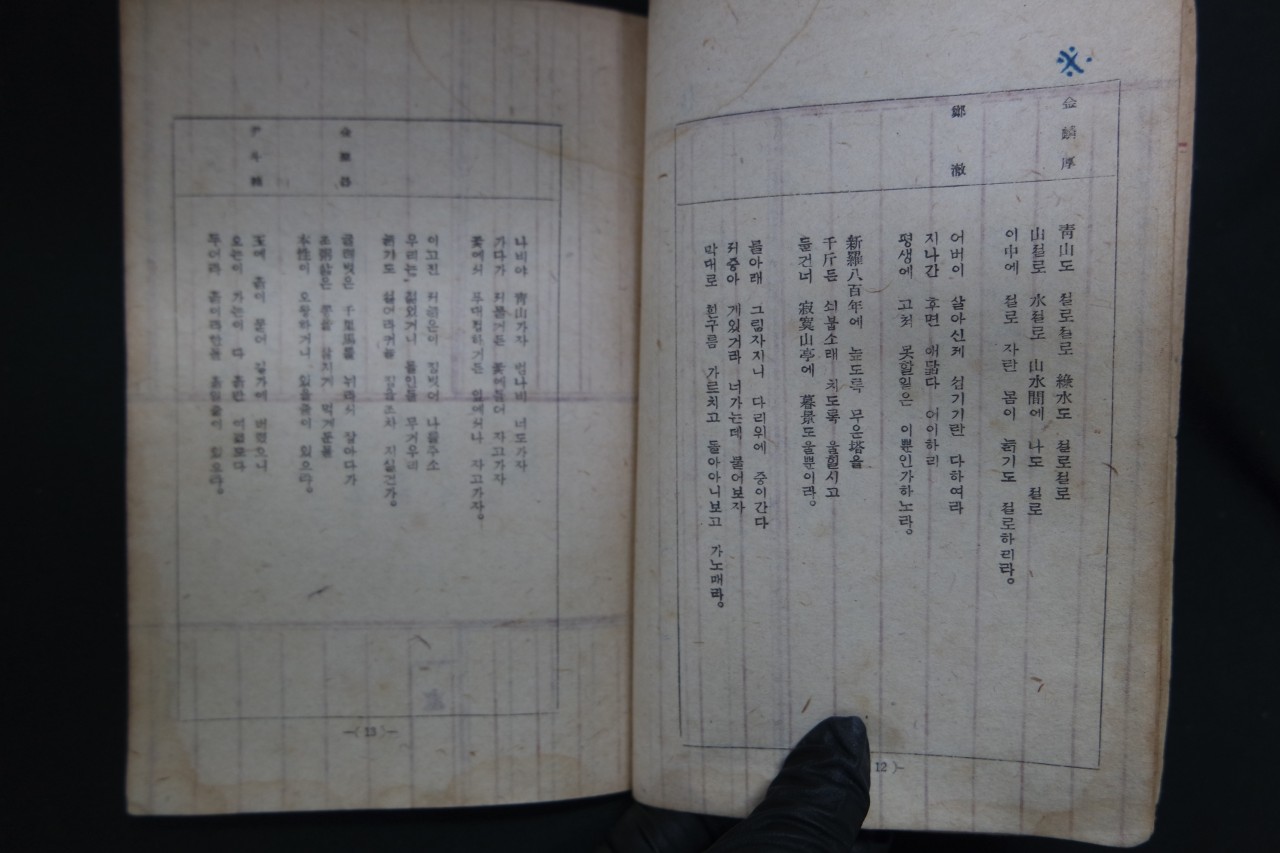 金麟厚
靑山도 절로절로 綠水도 절로절로
山절로 水절로 山水間에 나도 절로
이中에 절로 자란 몸이 늙기도 절로하리라。
鄭澈
어버이 살아신제 섬기기란 다하여라
지나간 후면 애닯다 어이하리
평생에 고쳐 못할일은 이뿐인가하노라。
新羅八百年에 높도록 무은塔을
千斤든 쇠북소래 치도록 울힐시고
들건너 寂寞山亭에 暮景도울뿐이라。
물아래 그림자지니 다리위에 중이간다
저중아 게있거라 너가는데 물어보자
막대로 흰구름 가르치고 돌아아니보고 가노매라。
12
나비야 靑山가자 범나비 너도가자
가다가 저물거든 꽃에들어 자고가자
꽃에서 푸대접하거든 잎에서나 자고가자。
이고진 저늙은이 짐벗어 나를주소
우리는 젊었거니 돌인들 무거우리
늙기도 설어라커늘 짐을조차 지실건가。
千里馬를 잡아다가
本性이 오왕하거니 있을줄이 있으랴。
尹斗緖
玉에 흙이 묻어 길가에 버렸으니
오는이 가는이 다 흙만 여겼도다
두어라 흙이라한들 흙일줄이 있으랴。
—( 13 )—